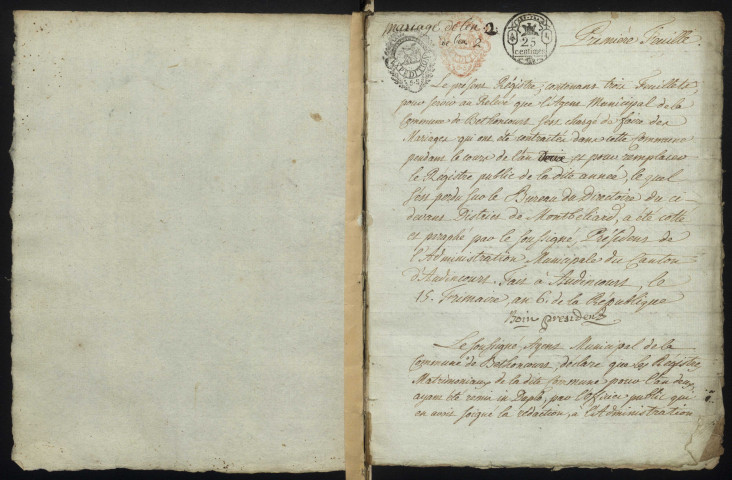 mariage de l'an 2
25
centimes
Première Feuille
Le présent Régistre, contenant trois Feuillets
pour servir au Relevé que l'Agent Municipal de la
Commune de Bethoncourt s'est chargé de faire des
Mariages qui ont été contractés dans cette Commune
pendant le cours de l'an Deux et pour remplacer
le Régistre public de la dite année, le quel
s'est perdu sur le Bureau du Directoire du ci-
devant District de Montbéliard, a été cotté
et paraphé par le soussigné, Président de
l'Administration Municipale du Canton
d'Audincourt. Fait à Audincourt, le
15. Frimaire, an 6. de la République
président
Le soussigné, Agent Municipal de la
Commune de Bethoncourt, déclare que les Régistres
Matrimoniaux de la dite Commune pour l'an deux,
ayant été remis in Duplo, par l'officier public qui
en avoit soigné la rédaction, à l'Administration